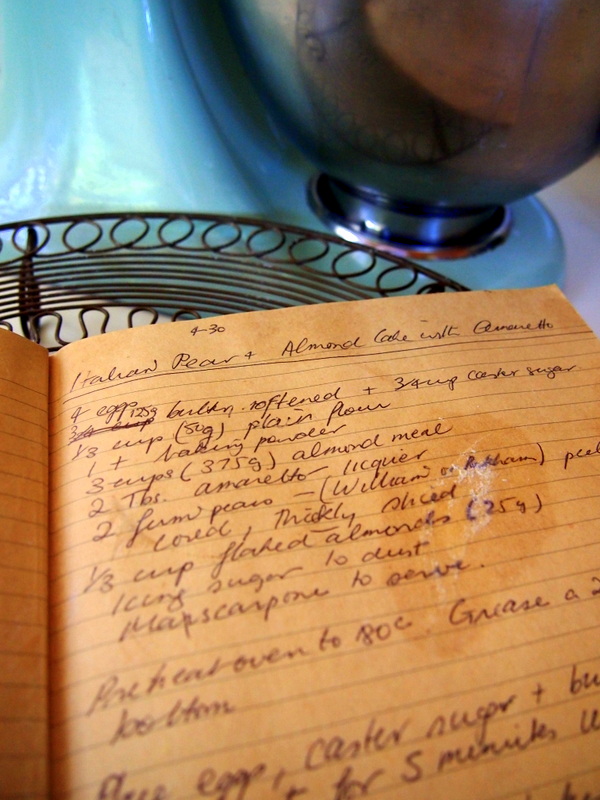 4-30
Italian Pear + Almond Cake with Amaretto
4 eggs 125g butter softened + 3/4 cup caster sugar
1/3 cup (50g) plain flour
1 t baking powder
3 cups (375g) almond meal
2 Tbs. amaretto liquier
2 firm pears - (William or) peel
cored, thickly sliced
1/3 cup flaked almonds (25g)
Icing sugar to dust
Mapscarpone to serve.
Preheat oven to 180c. Grease a 2
bottom
egg, caster sugar + bu
+ for 5 minutes